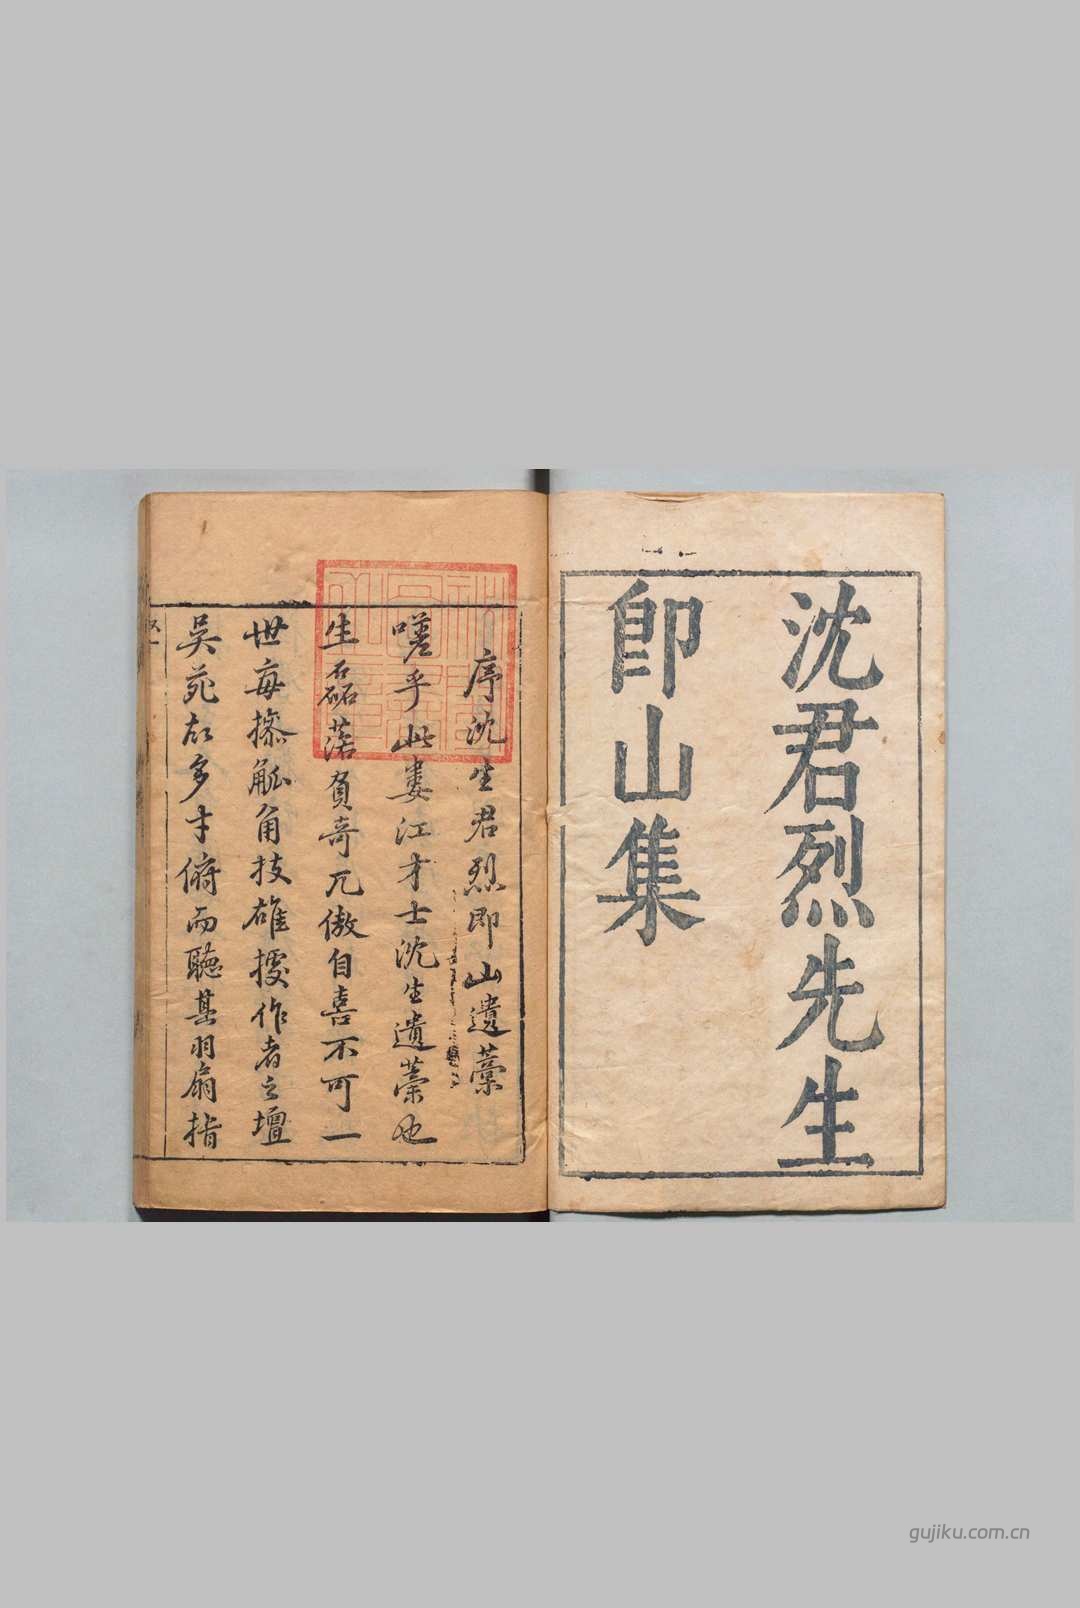 沈君烈先生
卽山集
序沈生君烈即山遺藁
嗟乎此婁江才士沈生遺藁也
生磊落負奇兀傲自喜不可一
世每搽觚角技雄據作者之壇
吳苑故多才俯而聽其羽扇指
gujiku.com.cn